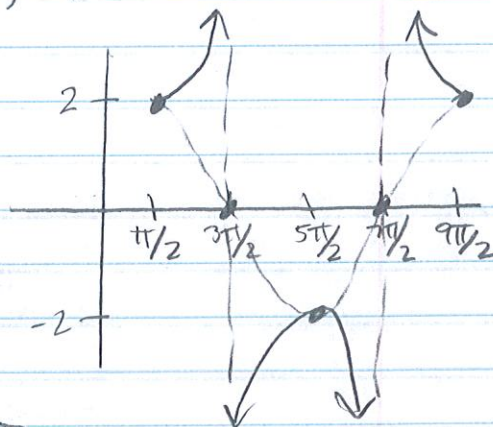 2
π/2 3π/2 5π/2 7π/2 9π/2
-2